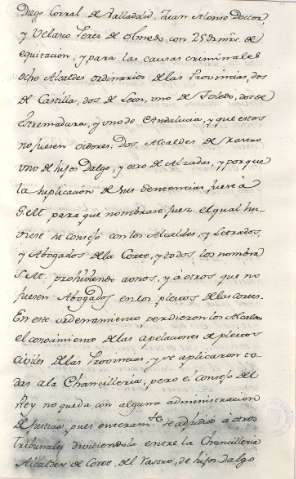 Diego Corral de Valladolid, Juan Alonso Doctor
y Velasio Perez de Olmedo, con 25 Ð mrs. de
equitacion, y para las causas criminales
ocho Alcaldes ordinarios de las Provincias, dos
de Castilla, dos de Leon, uno de Toledo, dos de
Estremadura, y uno de Andalucia, y que estos
no fuesen oidores. Dos Alcaldes de Rastro
uno de hijos dalgo, y otro de Alzadas, y porque
la suplicacion de sus sentencias, fuese à
S.M. para que nombrase Juez el qual hu-
viese su consejo con los Alcaldes, y Letrados,
y Abogados de la Corte, y todos los nombra
S.M. prohibiendo à unos, y à otros que no
fuesen Abogados en los pleitos de la corte.
En este ordenamiento perdieron los Alcaldes
el conocimiento de las apelaciones de pleitos
civiles de las Provincias, y se aplicaron to
das ala Chancilleria, pero el consejo del
Rey no queda con alguna administracion
de justicia, pues enteramte. se adjudico à otros
Tribunales dividiendola entre la Chancilleria
Alcaldes de Corte, del Rastro, de hijos dalgo